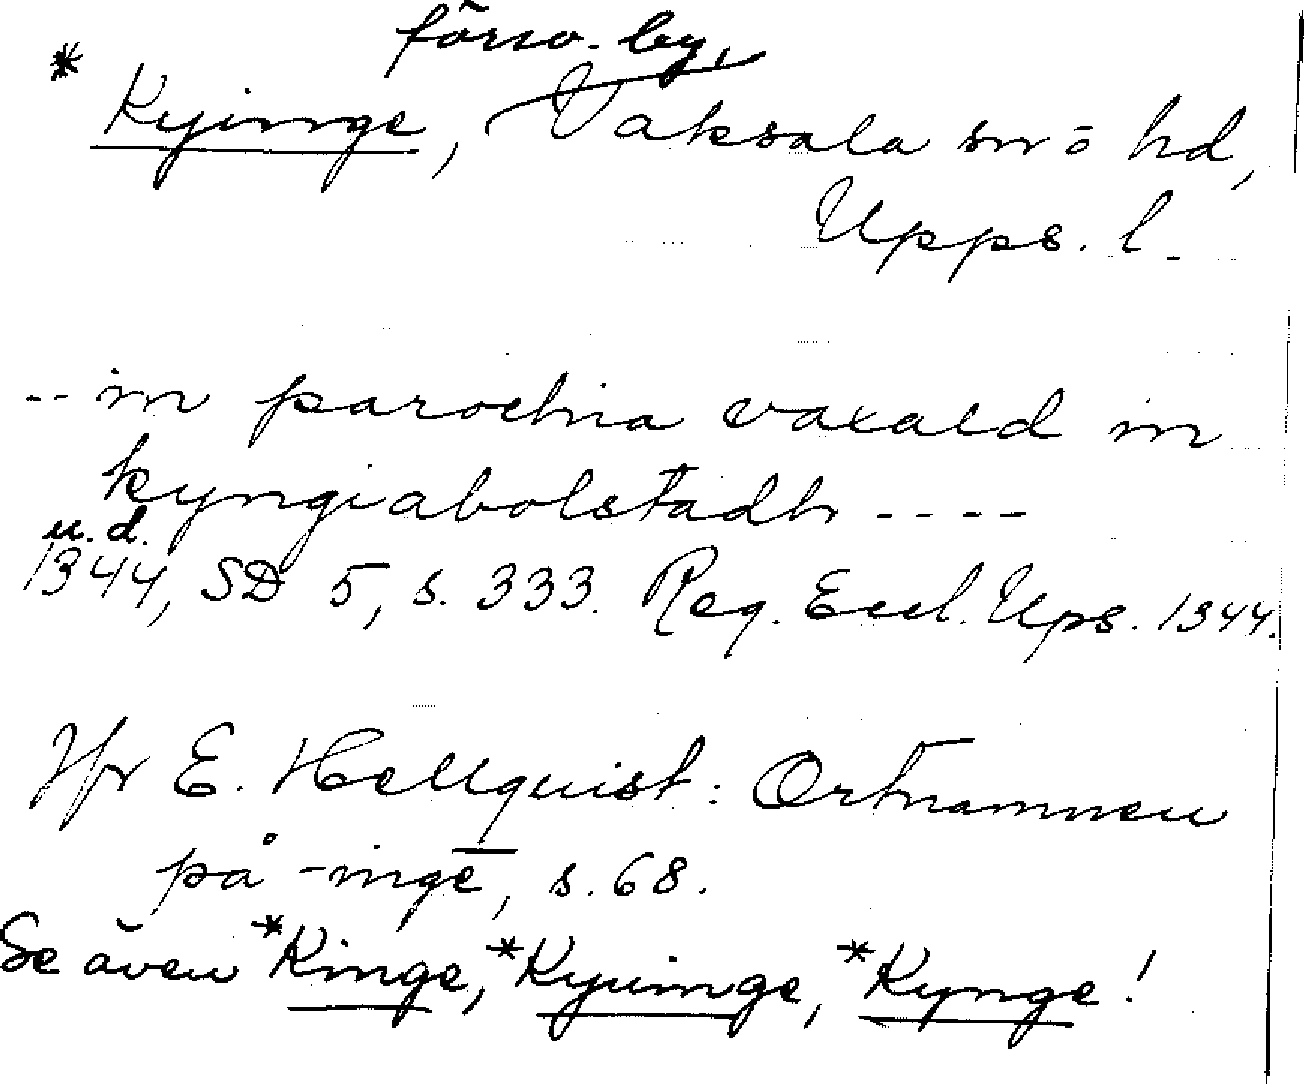 försv. by,
* Kyinge, Vaksala sn o hd,
Upps. l.
-- in parochia vaxald in
kyngiabolstadh ----
u.d.
1344, SD 5, s. 333. Reg. Eccl. Ups. 1344.
Jfr E. Hellquist: Ortnamnen
på -inge, s. 68.
Se även *Kinge, *Kyninge, *Kynge!